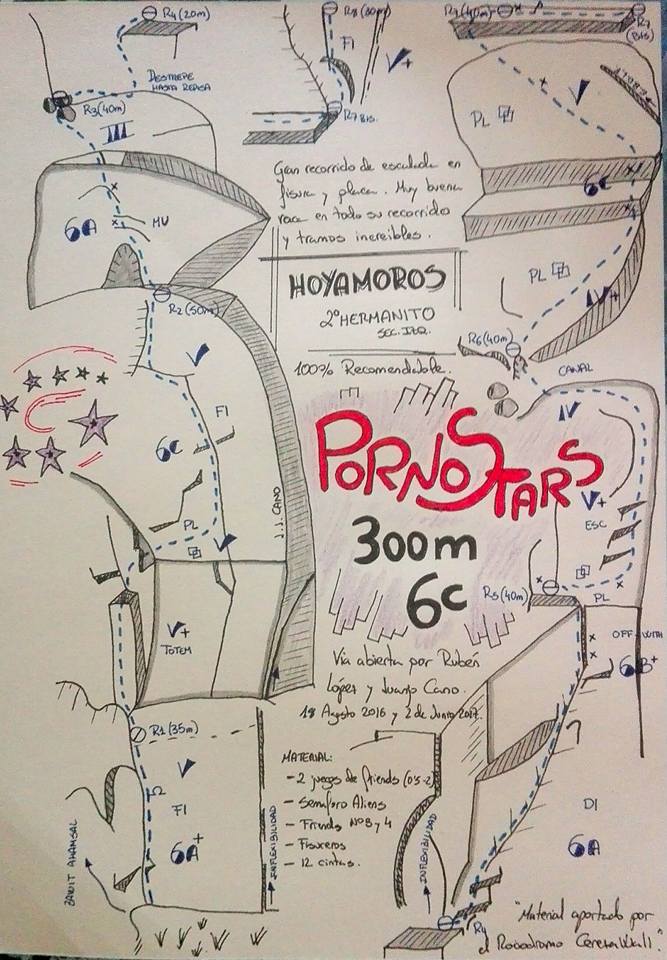 R4 (20m)
DESTREPE
HASTA REPISA
R3 (40m)
III
6A
MU
R2 (50m)
V
FI
6C
PL
V
J.J. CANO
V+
TOTEM
R1 (35m)
V
FI
6A+
INFLEXIBILIDAD
R8 (30m)
FI
V+
R7 BIS.
Gran recorrido de escalada en
fisura y placa. Muy buena
roca en todo su recorrido
y tramos increibles.
HOYAMOROS
2º HERMANITO
SEC. IZQ.
100% Recomendable.
PORNOSTARS
300m
6c
Via abierta por Rubén
López y Juanjo Cano.
18 Agosto 2016 y 2 de Junio 2017.
MATERIAL:
- 2 juegos de friends (0'5-2)
- Semáforo Aliens
- Friends Nº3 y 4
- Fisureros
- 12 cintas.
R7 (40m)
R7
(BIS)
V
PL
6C
PL
IV+
R6 (40m)
CANAL
IV
V+
ESC
R5 (40m)
PL
OFF-WITH
6B+
DI
6A
INFLEXIBILIDAD
R4
"Material aportado por
el Rocodromo CerezaWall."